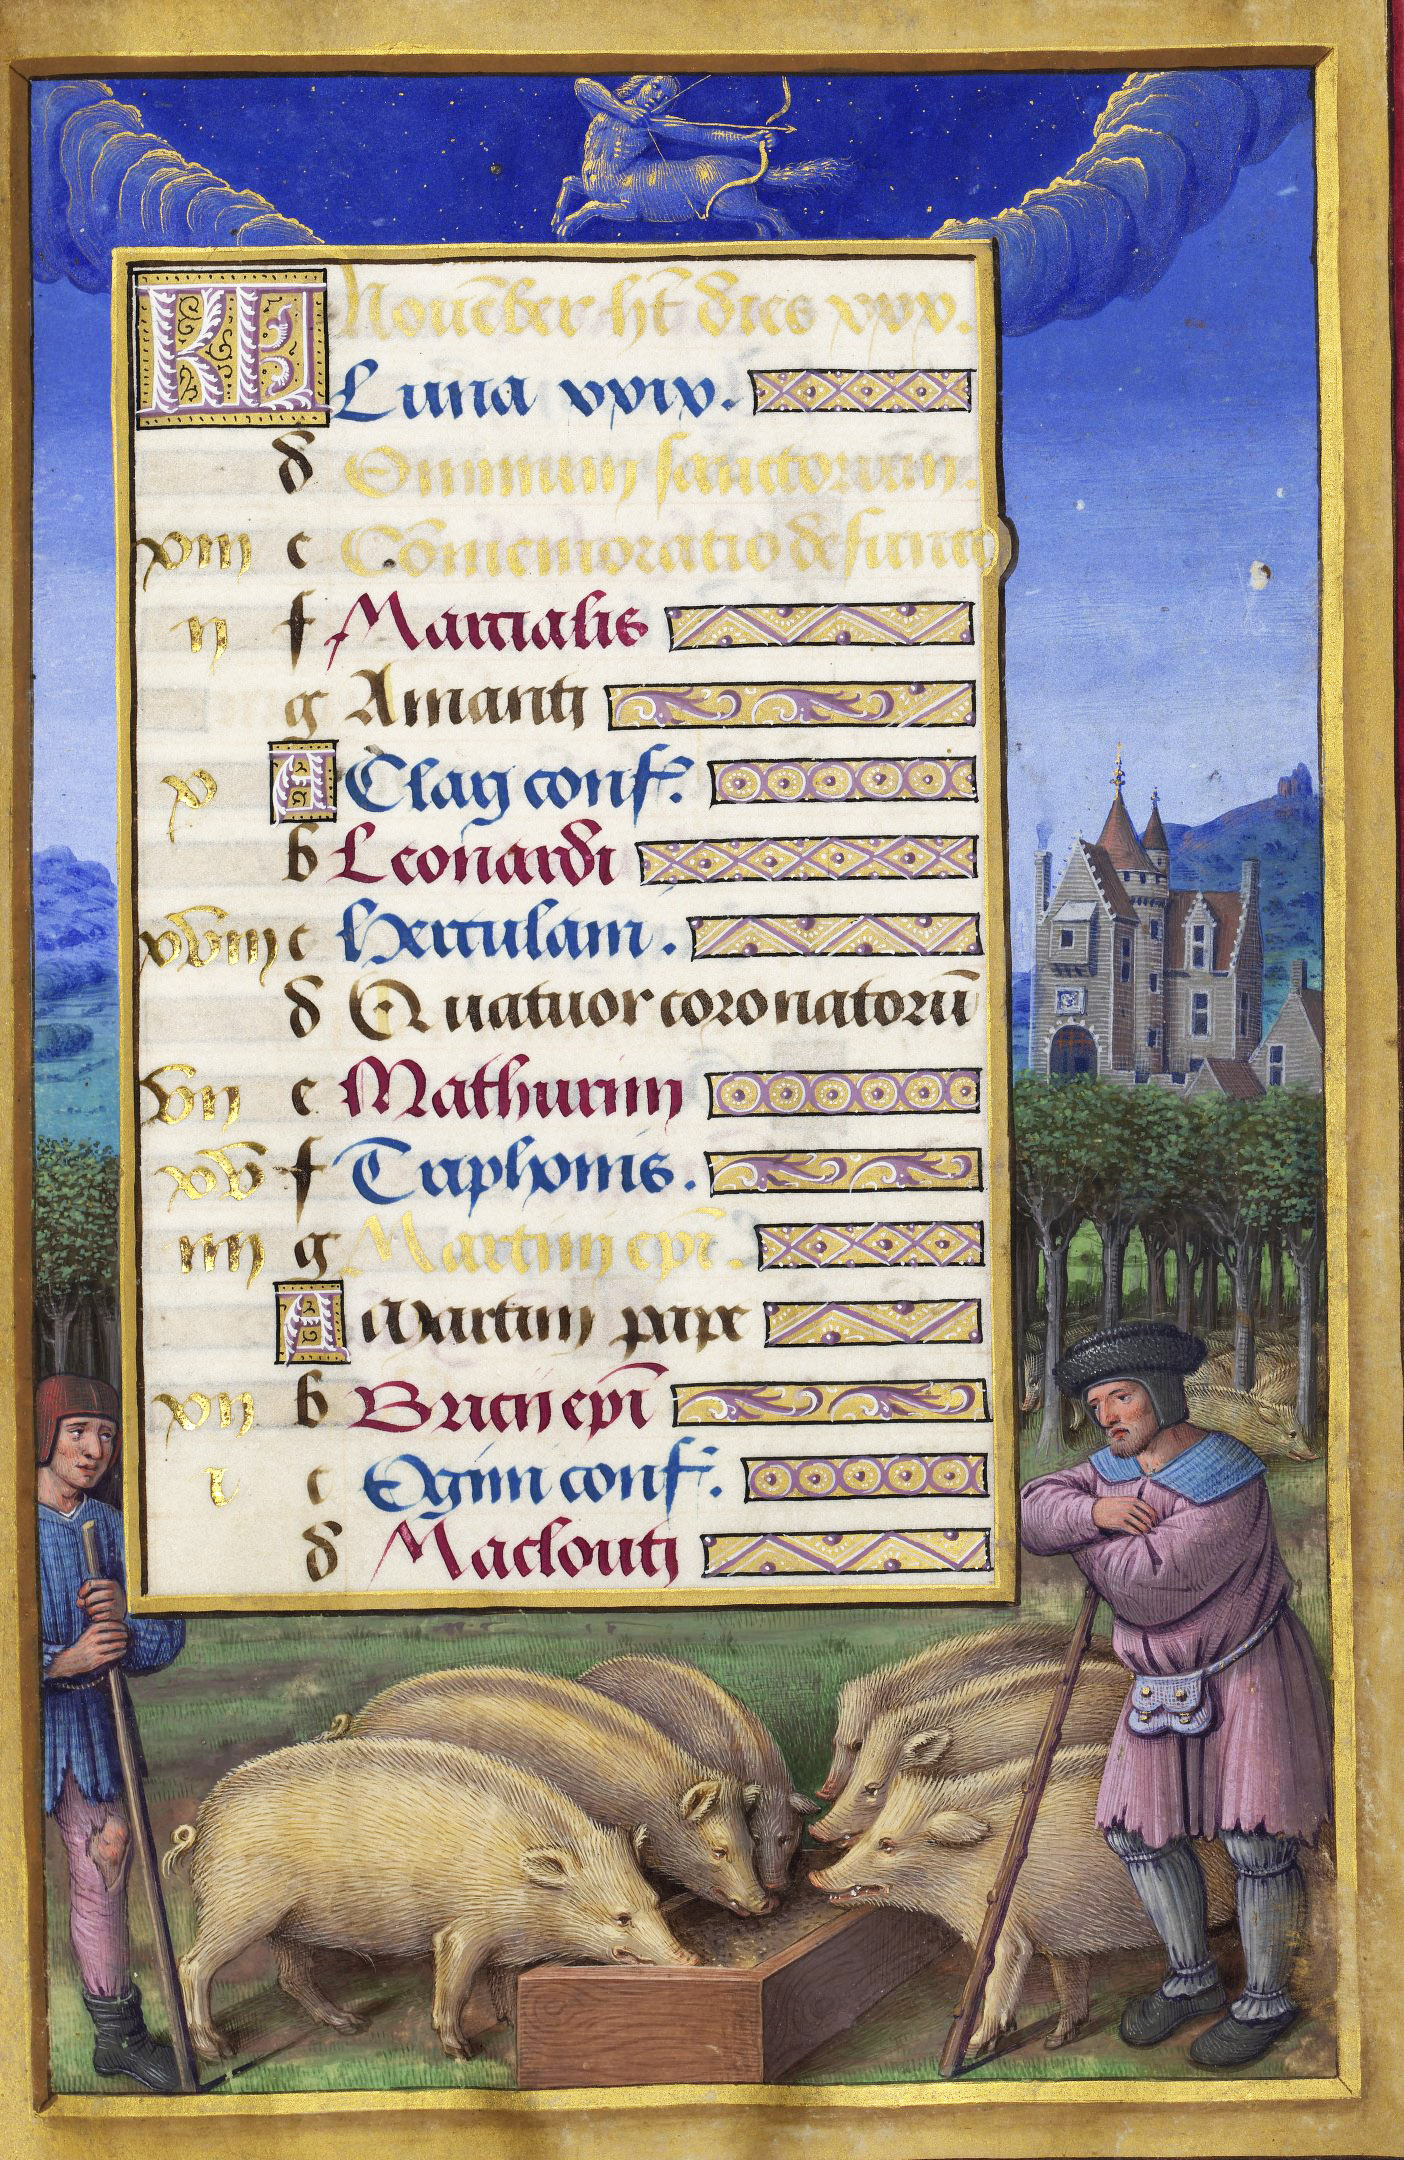 KL Nouēber hꝫ dies xxx.
Luna xxix.
d Omnium sanctorum.
xiii e Cōmemoratio defuncto
ii f Marcialis
g Amanti
x A Clari conf.
b Leonardi
xviii c herculani.
d Quatuor coronatorū
vii e Mathurini
xv f Triphonis.
iiii g Martini epī.
A Martini pape
xii b Bricii epī
i c Egini conf.
d Maclouti